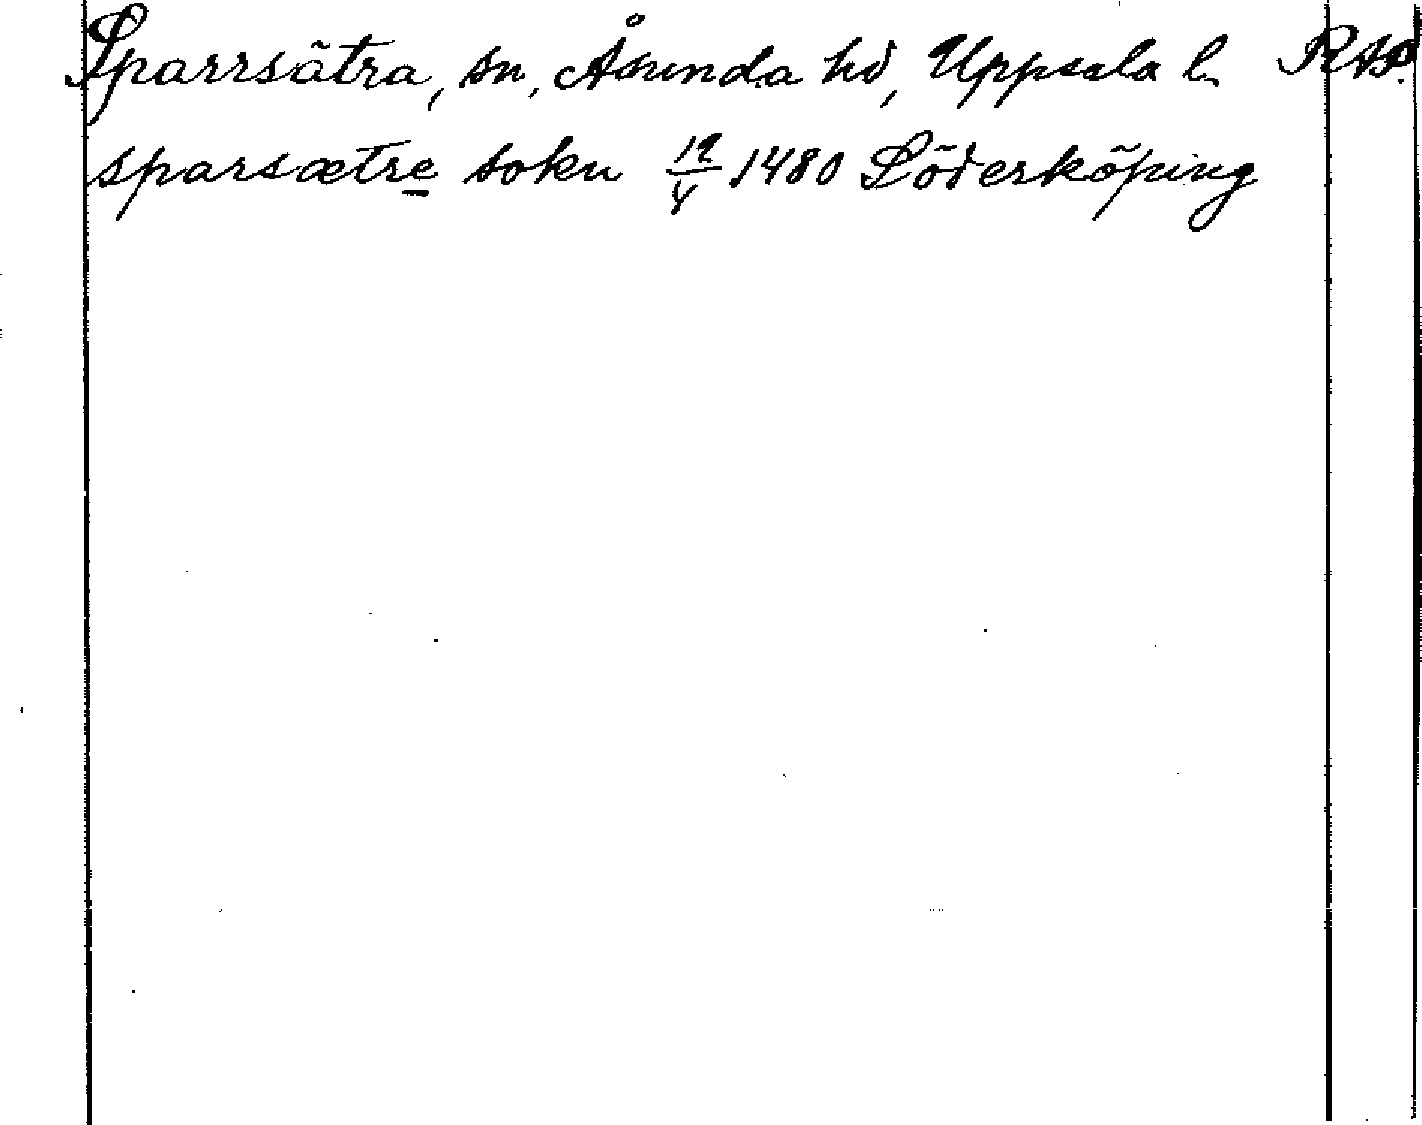 Sparrsätra, sn, Åsunda hd, Uppsala l. RAP.
sparsætre sokn 12/4 1480 Söderköping